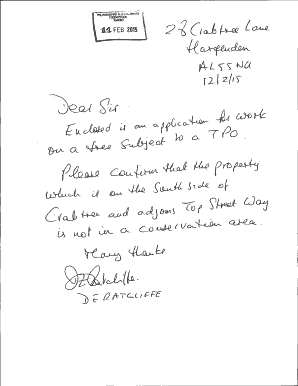 11 FEB 2015
28 Crabtree Lane
Harpenden
AL5 5NU
12/2/15
Dear Sir
Enclosed is an application for work
on a tree subject to a TPO.
Please confirm that the property
which is on the South side of
Crabtree and adjoins Top Street Way
is not in a conservation area.
Many thanks
D E Ratcliffe.
D E RATCLIFFE